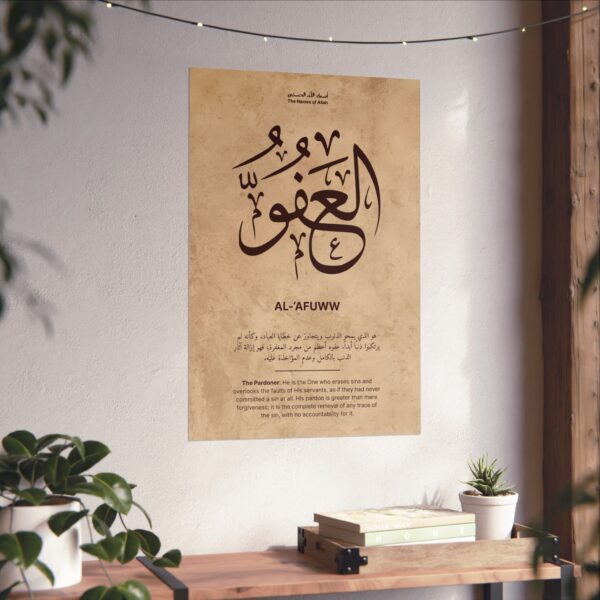 أسماء الله الحسنى
The Names of Allah
العَفُوُّ
AL-'AFUWW
هو الذي يمحو الذنوب ويتجاوز عن خطايا العباد، وكأنه لم
يرتكبوا ذنبًا أبدًا. عفوه أعظم من مجرد المغفرة، فهو إزالة آثار
الذنب بالكامل وعدم المؤاخذة عليه.
The Pardoner: He is the One who erases sins and
overlooks the faults of His servants, as if they had never
committed a sin at all. His pardon is greater than mere
forgiveness; it is the complete removal of any trace of
the sin, with no accountability for it.